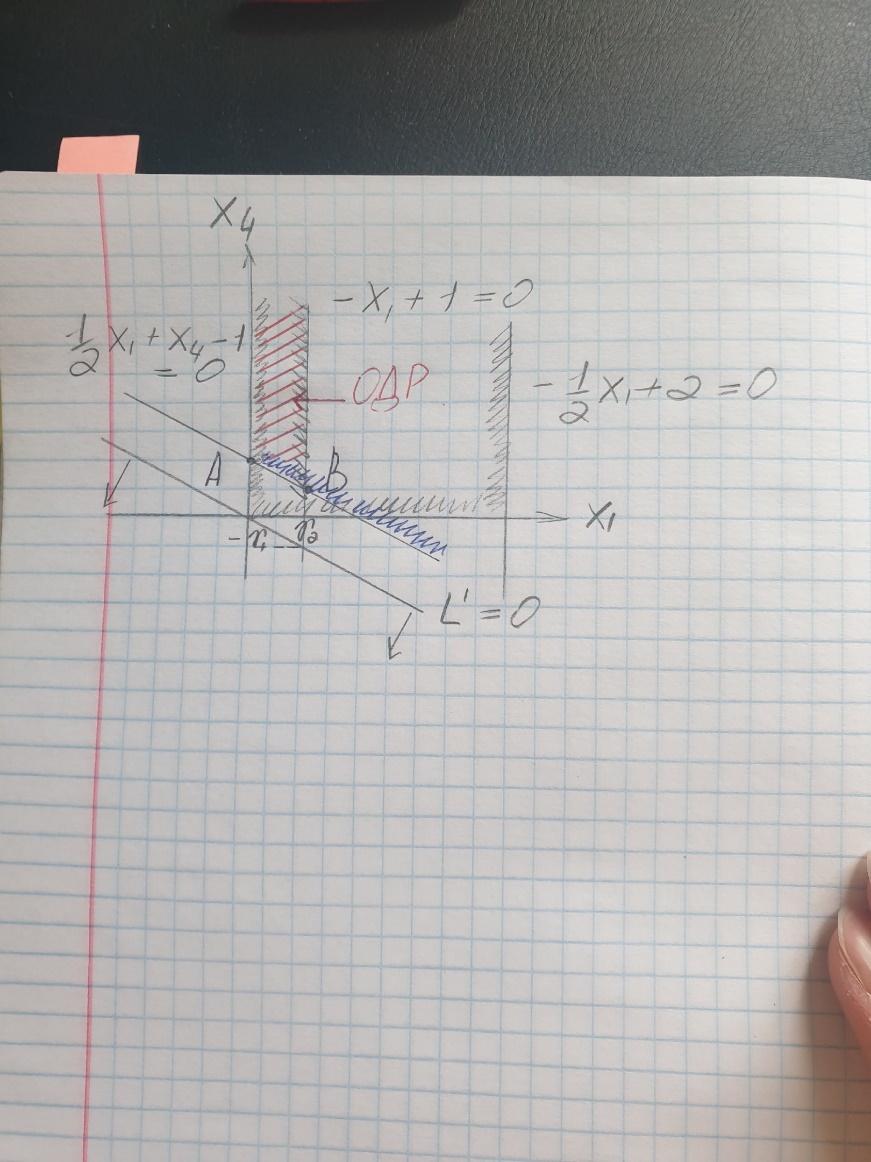 X₄
-X₁ + 1 = 0
½X₁ + X₄ - 1
= 0
ОДР
-½X₁ + 2 = 0
A
B
X₁
L' = 0